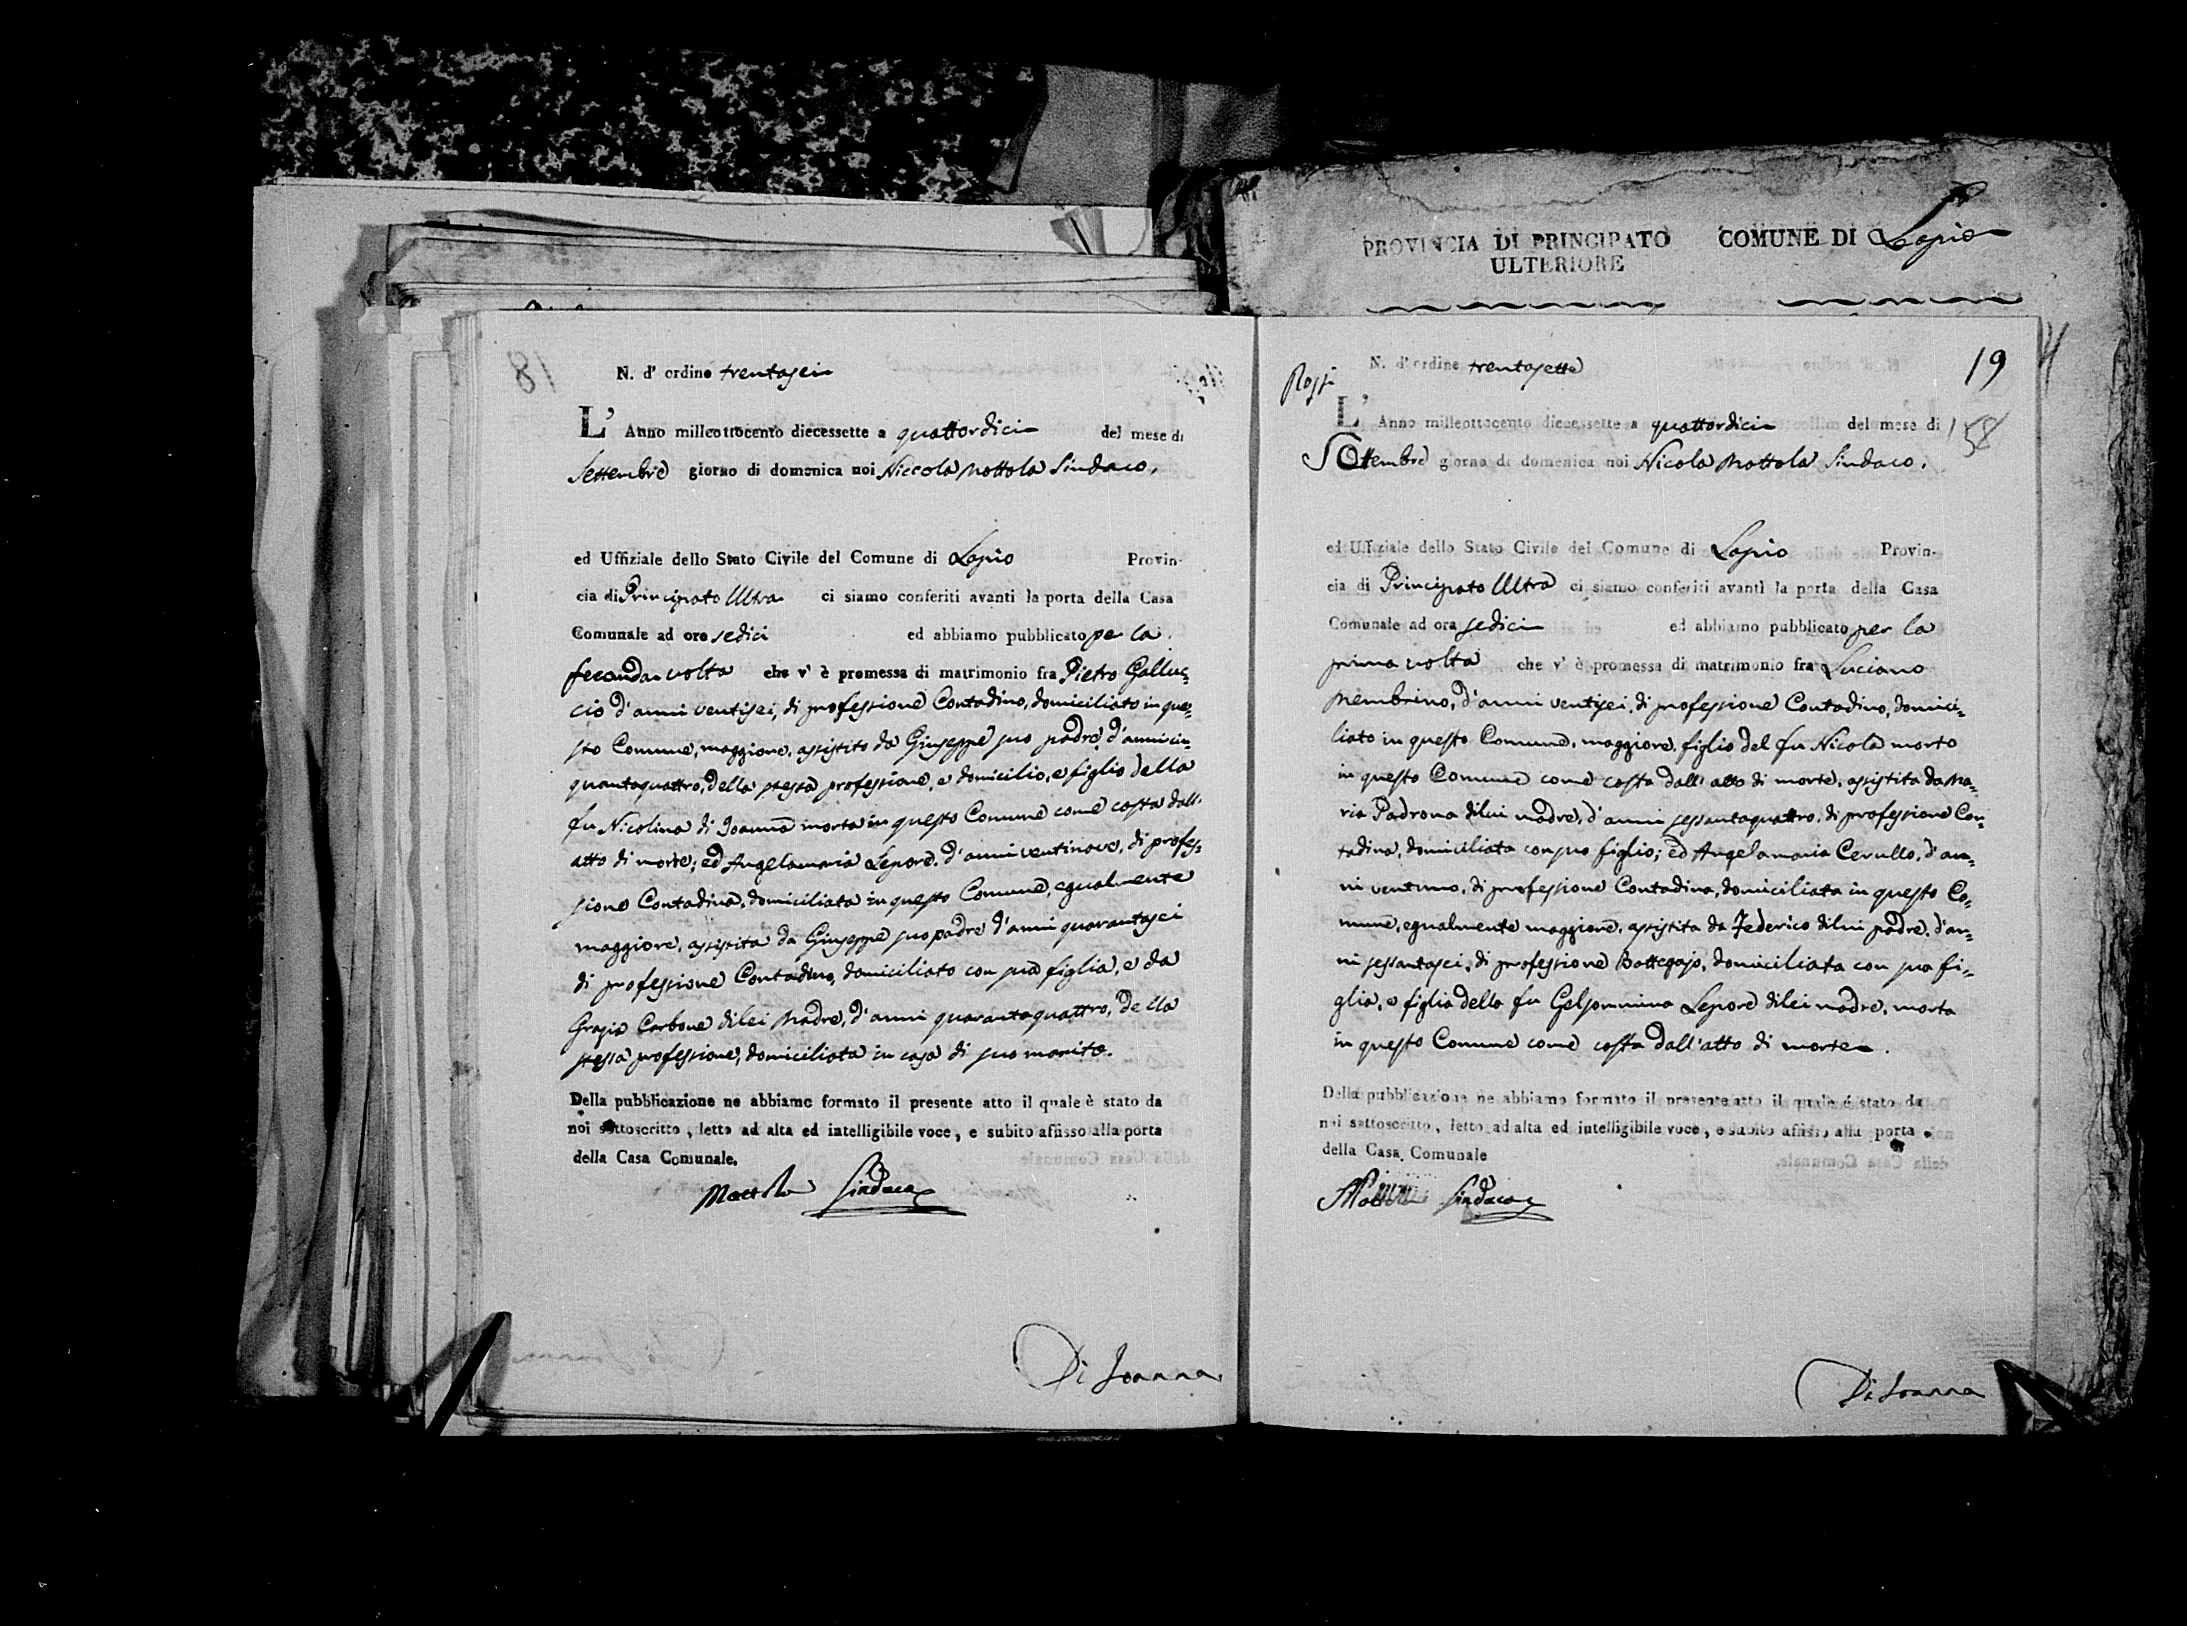 PROVINCIA DI PRINCIPATO ULTERIORE
COMUNE DI Lapio
18
N. d' ordine trentasei
L' Anno milleottocento diecessette a quattordici del mese di
Settembre giorno di domenica noi Niccola Mottola Sindaco,
ed Uffiziale dello Stato Civile del Comune di Lapio Provin-
cia di Principato Ultra ci siamo conferiti avanti la porta della Casa
Comunale ad ore sedici ed abbiamo pubblicato per la
seconda volta che v' è promessa di matrimonio fra Pietro Galluc=
cio d'anni ventisei, di professione Contadino, domiciliato in que=
sto Comune, maggiore, assistito da Giuseppe suo padre d'anni cin=
quantaquattro, della stessa professione, e domicilio, e figlio della
fu Nicolina di Joanna morta in questo Comune come costa dall'
atto di morte; ed Angelamaria Lepore, d'anni ventinove, di profes=
sione Contadina, domiciliata in questo Comune, egualmente
maggiore, assistita da Giuseppe suo padre d'anni quarantasei
di professione Contadino, domiciliato con sua figlia, e da
Grazia Carbone di lei Madre, d'anni quarantaquattro, della
stessa professione, domiciliata in casa di suo marito.
Della pubblicazione ne abbiamo formato il presente atto il quale è stato da
noi sottoscritto, letto ad alta ed intelligibile voce, e subito affisso alla porta
della Casa Comunale.
Mottola Sindaco
Di Joanna
19
158
Rossi
N. d' ordine trentasette
L' Anno milleottocento diecessette a quattordici del mese di
Settembre giorno di domenica noi Nicola Mottola Sindaco,
ed Uffiziale dello Stato Civile del Comune di Lapio Provin-
cia di Principato Ultra ci siamo conferiti avanti la porta della Casa
Comunale ad ora sedici ed abbiamo pubblicato per la
prima volta che v' è promessa di matrimonio fra Luciano
Membrino, d'anni ventisei, di professione Contadino, domici=
liato in questo Comune, maggiore, figlio del fu Nicola morto
in questo Comune come costa dall' atto di morte, assistita da Ma=
ria Padrona di lui madre, d'anni sessantaquattro, di professione Con=
tadina, domiciliata con suo figlio; ed Angelamaria Cerullo, d'an=
ni ventuno, di professione Contadina, domiciliata in questo Co=
mune, egualmente maggiore, assistita da Federico di lui padre, d'an=
ni sessantasei, di professione Bottegajo, domiciliata con sua fi=
glia, e figlia della fu Gelsommina Lepore di lei madre, morta
in questo Comune come costa dall'atto di morte.
Della pubblicazione ne abbiamo formato il presente atto il quale è stato da
noi sottoscritto, letto ad alta ed intelligibile voce, e subito affisso alla porta
della Casa Comunale
Mottola Sindaco
Di Joanna